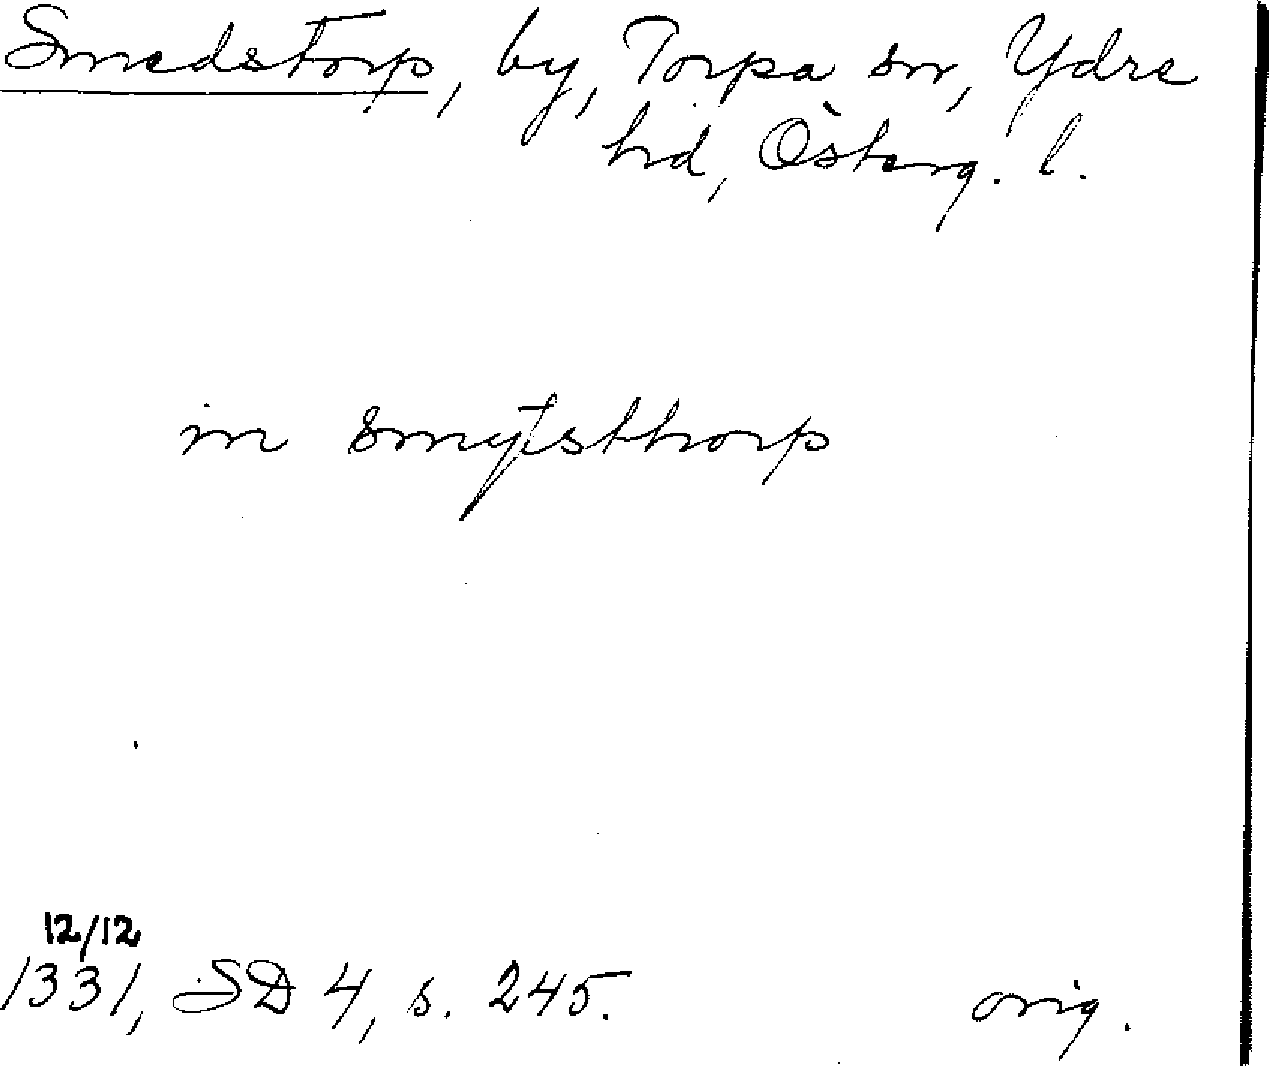 Smedstorp, by, Torpa sn, Ydre
hd, Österg. l.
in smytsthorp
12/12
1331, SD 4, s. 245.
orig.